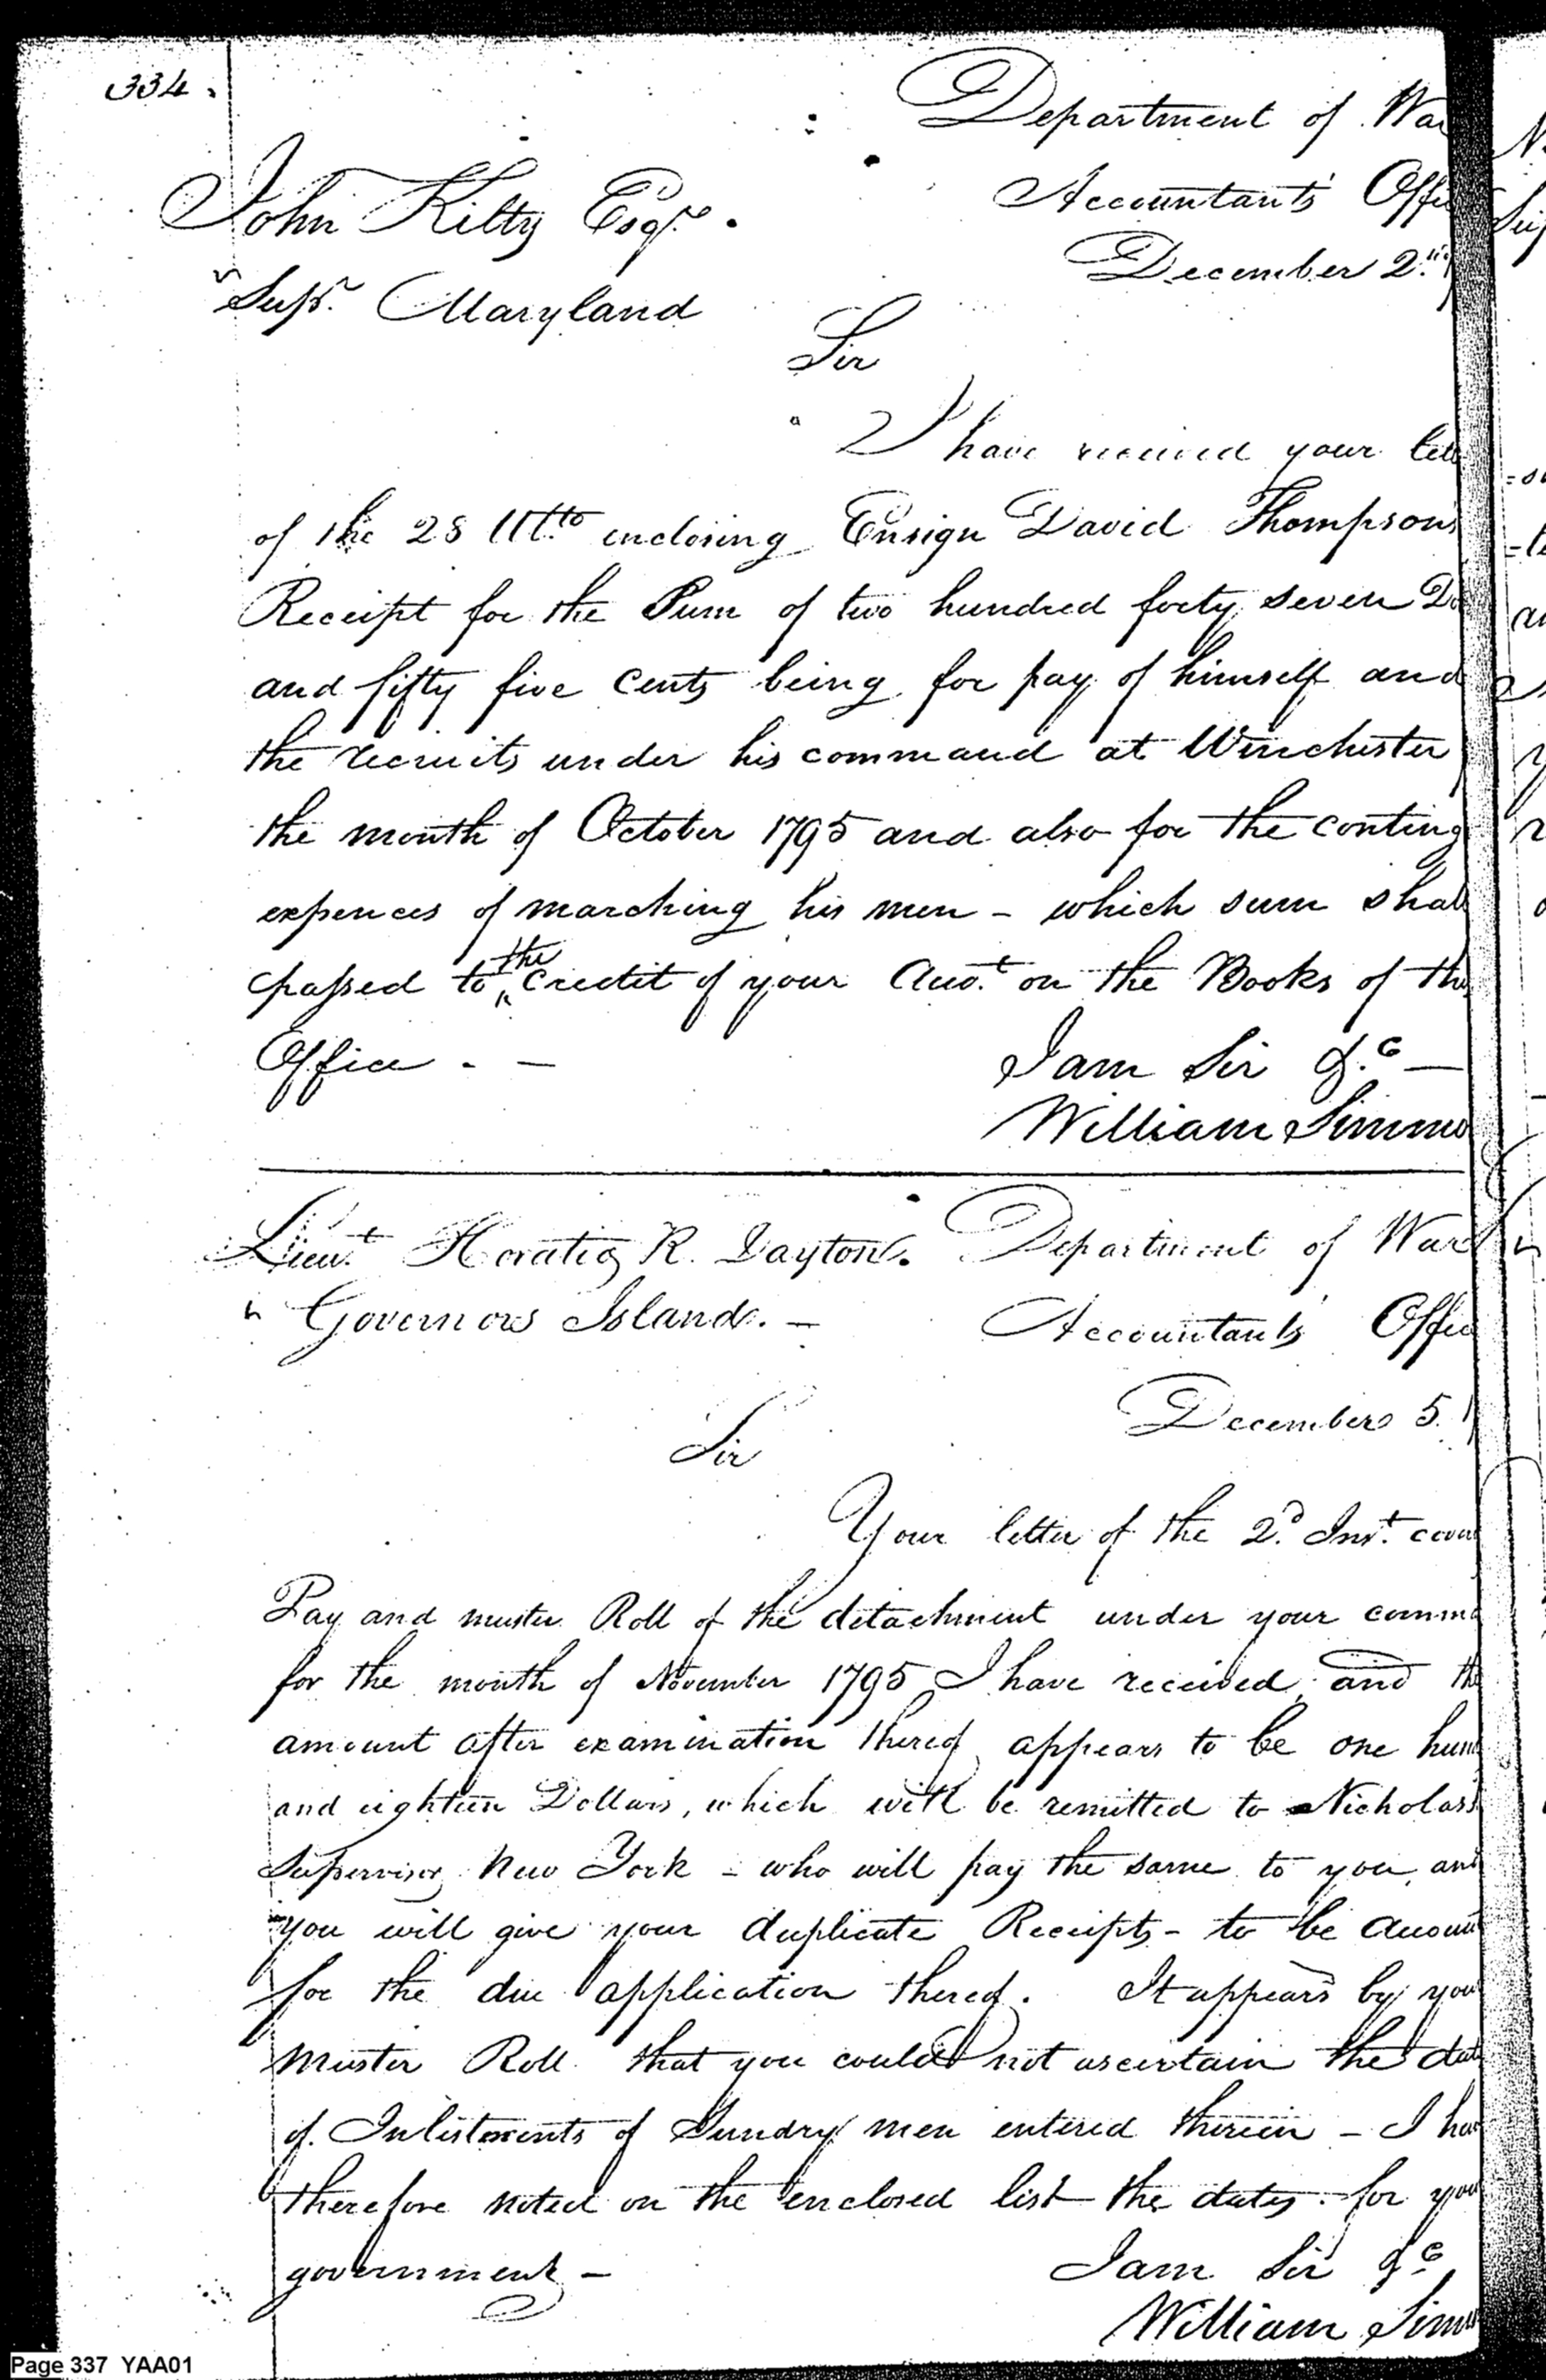 334.
Department of Wa
John Kilty Esqr.
Accountants Offi
December 2nd
Supr. Maryland
Sir
I have received your lett
of the 28 Ulto. inclosing Ensign David Thompsons
Receipt for the Sum of two hundred forty seven Do
and fifty five Cents being for pay of himself and
the recruits under his command at Winchester
the month of October 1795 and also for the conting
expences of marching his men - which sum shal
passed to the Credit of your Acco.t on the Books of th
Office. -
I am Sir &c -
William Simmo
Lieut. Horatio R. Dayton. Department of War
Governors Island. - Accountants Offic
December 5. 1
Sir
Your letter of the 2d. Inst. cove
Pay and muster Roll of the detachment under your comma
for the month of November 1795 I have received, and th
amount after examination thereof appears to be one hun
and eighteen Dollars, which will be remitted to Nicholas
Supervisor New York - who will pay the same to you, and
you will give your duplicate Receipts - to be accoun
for the due application thereof. It appears by you
Muster Roll that you could not ascertain the dat
of Inlistments of Sundry men entered therein - I hav
therefore noted on the enclosed list the dates - for you
government -
I am Sir &c
William Simm
Page 337 YAA01